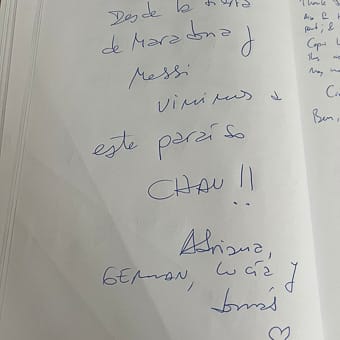 Desde la tierra
de Maradona y
Messi
vinimos a
este paraíso
CHAU!!
Adriana,
GERMAN, Lucía y
Tomás
Thank